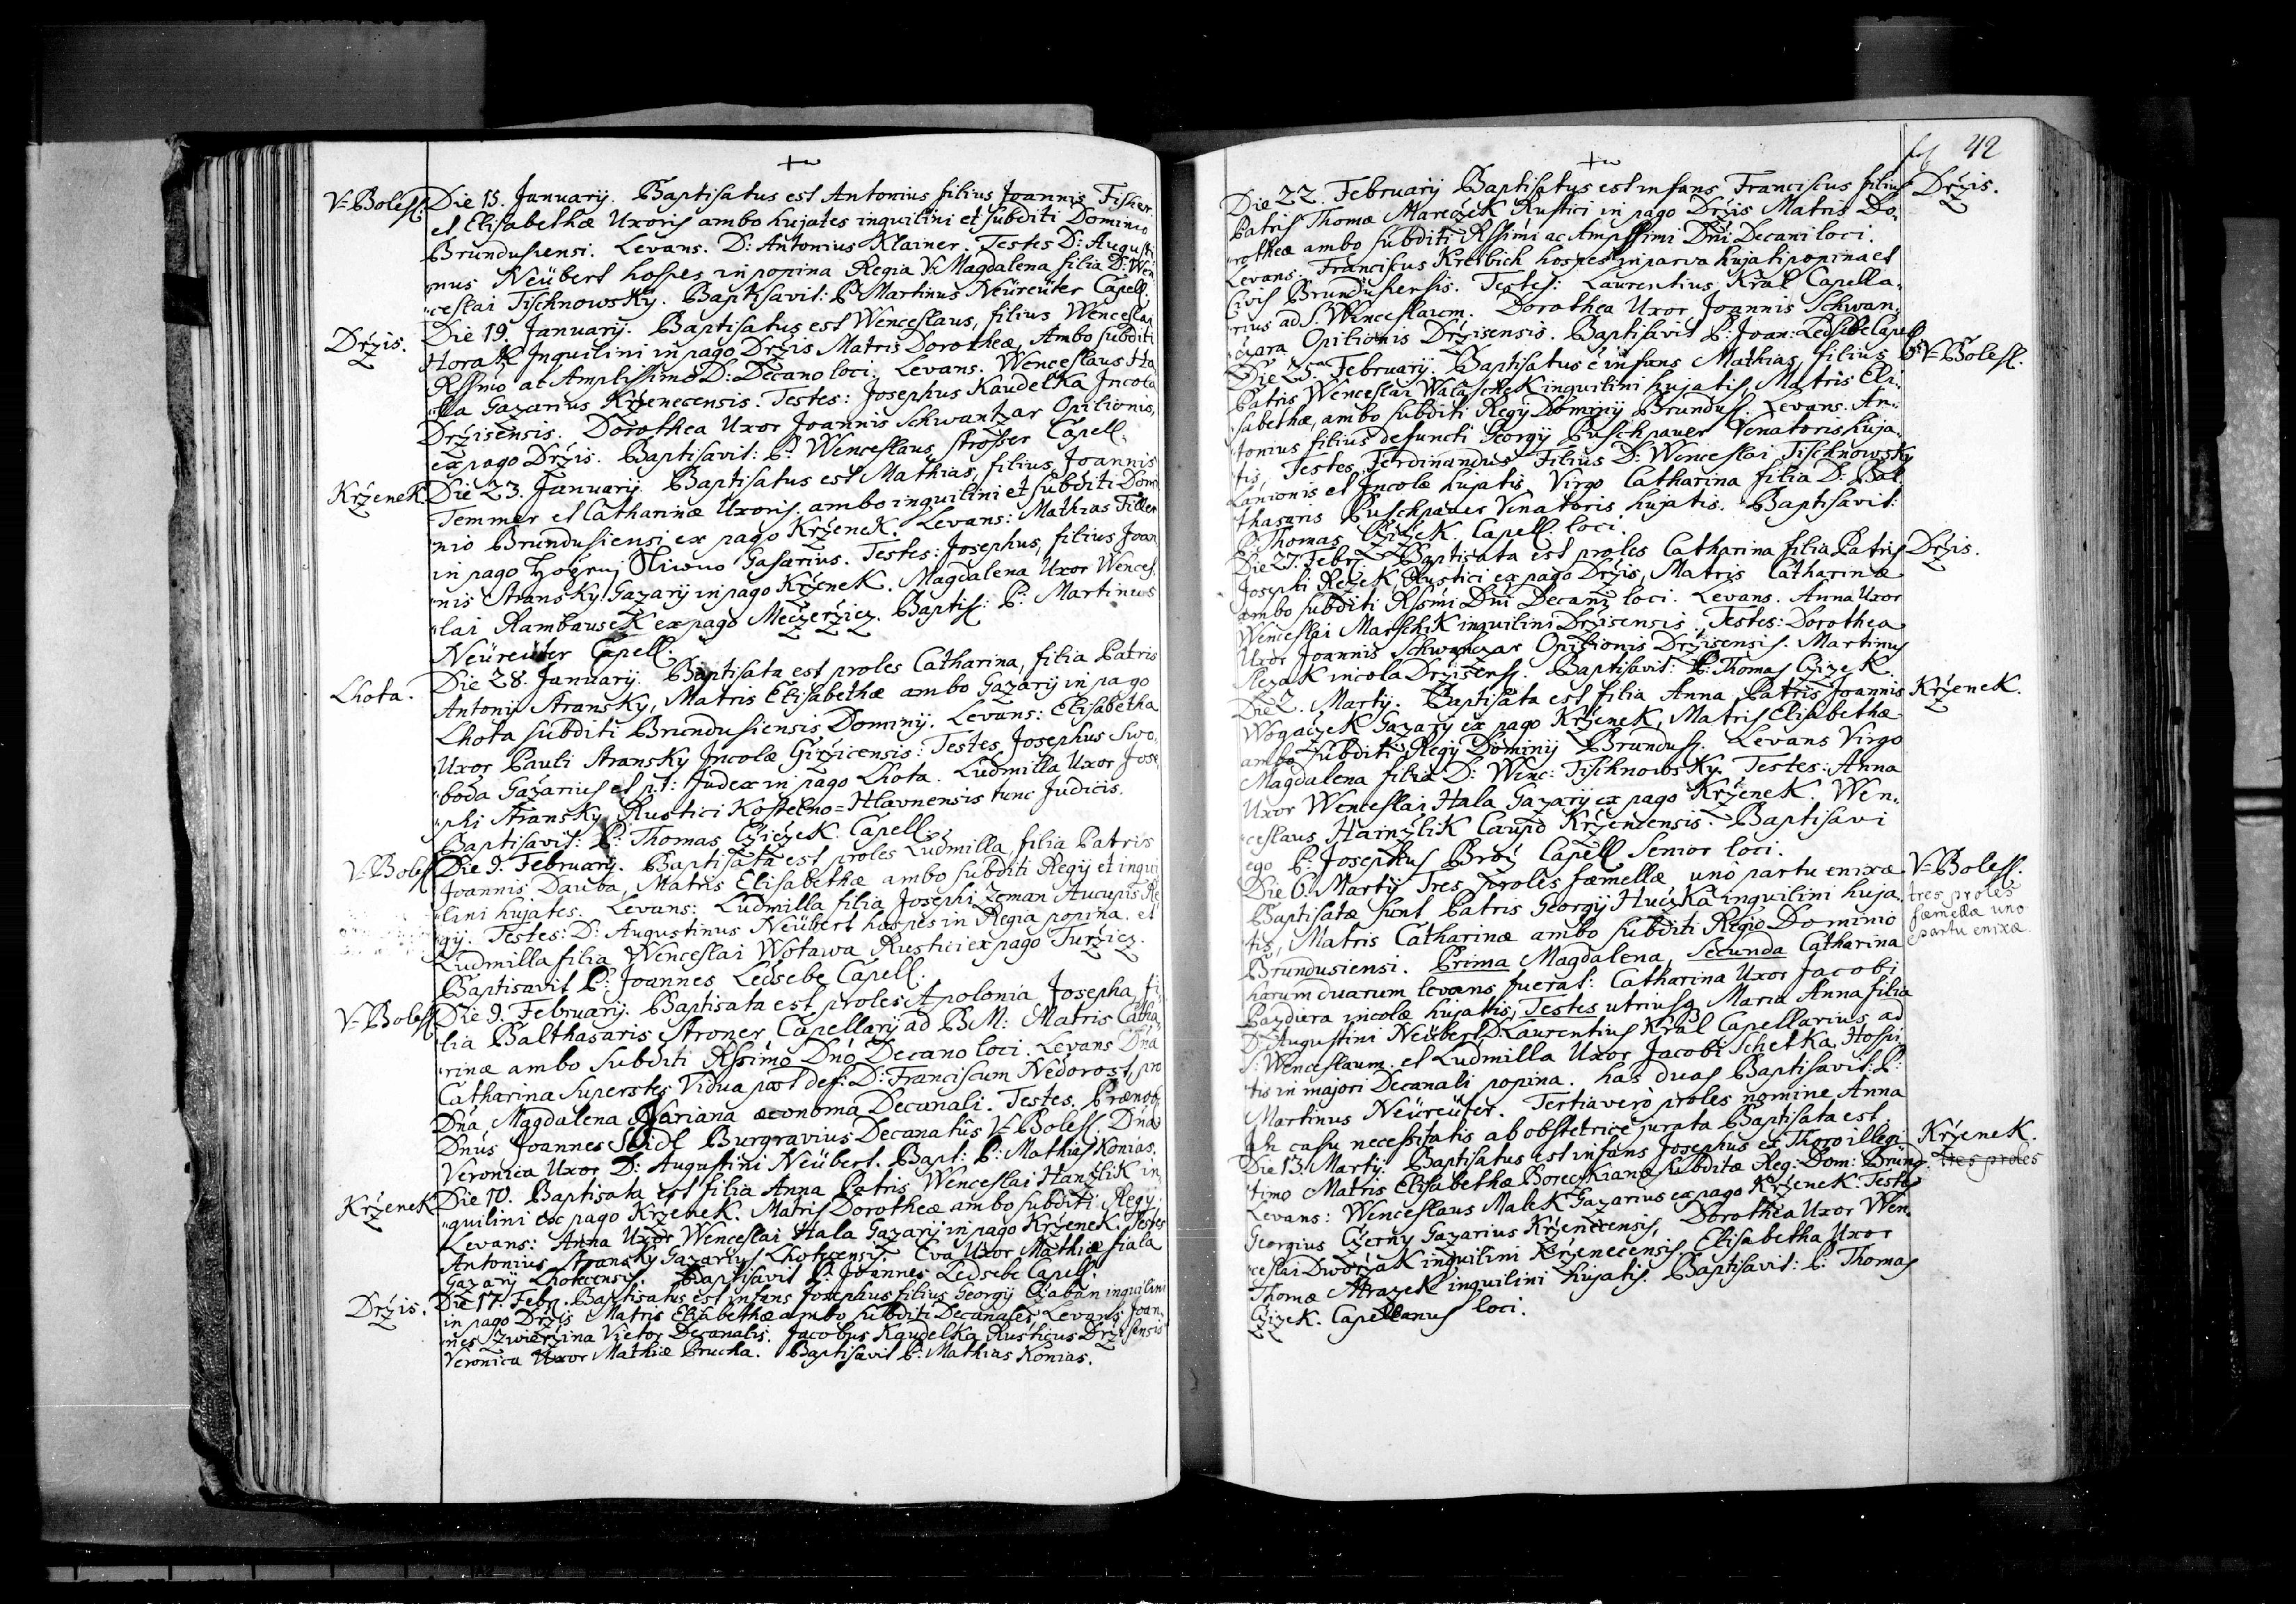 V: Bolesl. Die 15. Januarij. Baptisatus est Antonius filius Joannis Fisher
et Elisabethæ Uxoris ambo hujates inquilini et subditi Dominio
Brundusiensi. Levans. D: Antonius Klainer. Testes D: Augusti
nus Neübert hospes in popina Regia V. Magdalena filia D: Wen
ceslai Tischnowsky. Baptisavit: P. Martinus Neüreüter Capell.
Držis. Die 19. Januarij. Baptisatus est Wenceslaus, filius Wenceslai
Horak Inquilini in pago Držis Matris Dorotheæ, Ambo subditi
Rssimo ac Amplissimo D: Decano loci. Levans. Wenceslaus Ha
la Gazarius Krženecensis. Testes: Josephus Kaudelka Incola
Držisensis. Dorothea Uxor Joannis Schwantzar Opilionis,
ex pago Držis. Baptisavit: P. Wenceslaus Strosser Capell.
Krženek Die 23. Januarij. Baptisatus est Mathias, filius Joannis
Temmer et Catharinæ Uxoris, ambo inquilini et subditi Domi
nio Brundusiensi ex pago Krženek. Levans: Mathias Filler
in pago Sliwno Gasarius. Testes: Josephus, filius Joan
nis Stransky Gazarij in pago Krženek. Magdalena Uxor Wences
lai Rambausek ex pago Meczeržicz. Baptis: P. Martinus
Neüreüter Capell.
Lhota. Die 28. Januarij. Baptisata est proles Catharina, filia Patris
Antonij Stransky, Matris Elisabethæ ambo Gazarij in pago
Lhota subditi Brundusiensis Dominij. Levans: Elisabetha
Uxor Pauli Stransky Incolæ Giržicensis: Testes Josephus Swo,
boda Gazarius et p.t: Judex in pago Lhota. Ludmilla Uxor Jose
phi Stransky Rustici Kostelno=Hlavnensis tunc Judicis.
Baptisavit: P: Thomas Cziczek Capell.
V: Bolesl Die 9. Februarij. Baptisata est proles Ludmilla, filia Patris
Joannis Dauba, Matris Elisabethæ ambo subditi Regij et inqui
lini hujates. Levans: Ludmilla filia Josephi Zeman Aucupis Re
gij. Testes: D: Augustinus Neübert hospes in Regia popina. et
Ludmilla filia Wenceslai Wotawa Rustici ex pago Turžicz.
Baptisavit P: Joannes Ledsebe Capell.
V: Bolesl Die 9. Februarij. Baptisata est proles Apolonia Josepha, fi
lia Balthasaris Stroner Capellarij ad B.M: Matris Catha
rinæ ambo subditi Rssimo Dnō Decano loci. Levans Dnā
Catharina Superstes Vidua post def: D: Franciscum Nedorost, pro
Dnā Magdalena Mariana œconoma Decanali. Testes. Prænob.
Dnūs Joannes Seidl Burgravius Decanatûs V: Bolesl. Dnā
Veronica Uxor D: Augustini Neübert. Bapt: P: Mathias Konias.
Krženek Die 10. Baptisata est filia Anna Patris Wenceslai Hanžlik in
quilini ex pago Krženek. Matris Dorotheæ ambo subditi Regij.
Levans: Anna Uxor Wenceslai Hala Gazarij in pago Krženek. Testes
Antonius Stransky Gazarius Lhotecensis. Eva Uxor Mathiæ fiala
Gazarij Lhotecensis. Baptisavit P: Joannes Ledsebe Capell.
Držis. Die 17. Febr. Baptisatus est infans Josephus filius Georgij Czaban inquilini
in pago Držis Matris Elisabethæ ambo subditi Decanales, Levans: Joan,
nes Zwieržina Vietor Decanalis. Jacobus Kaudelka Rusticus Držisensis
Veronica Uxor Mathiæ Prucha. Baptisavit P: Mathias Konias.
fol 42
Die 22. Februarij Baptisatus est infans Franciscus filius Držis.
Patris Thomæ Mareczek Rustici in pago Držis Matris Do,
rotheæ ambo subditi Rssimi ac Amplssimi Dnī Decani loci.
Levans. Franciscus Kreibich hospes in parva hujati popina et
Civis Brundusiensis. Testes: Laurentius Kral Capella,
rius ad S. Wenceslaum. Dorothea Uxor Joannis Schwan,
czara Opilionis Držisensis. Baptisavit P: Joan: Ledsebe Capell
Die 25. Februarij. Baptisatus ē infans Mathias, filius V: Bolesl.
Patris Wenceslai Walaschek inquilini hujatis, Matris Eli,
sabethæ, ambo subditi Regij Dominij Brundus. Levans. An,
tonius filius defuncti Georgij Puschpauer Venatoris huja,
tis, Testes Ferdinandus Filius D: Wenceslai Tischnowsky
Lanionis et Incolæ hujatis, Virgo Catharina filia D: Bal
thasaris Puschpauer Venatoris hujatis. Baptisavit:
P. Thomas Czižek Capell. loci.
Die 27. Febr. Baptisata est proles Catharina filia Patris Držis.
Josephi Režek Rustici ex pago Držis, Matris Catharinæ
ambo subditi Rssmi Dnī Decani loci. Levans. Anna Uxor
Wenceslai Marschik inquilini Držisensis. Testes: Dorothea
Uxor Joannis Schwanczar Opilionis Držisensis. Martinus
Slezak incola Držisens. Baptisavit: P: Thomas Czizek.
Die 2. Martij. Baptisata est filia Anna Patris Joannis Krženek.
Wogaczek Gazarij ex pago Krženek, Matris Elisabethæ
ambo subditi Regij Dominij Brundus. Levans Virgo
Magdalena filia D: Winc: Tischnowsky. Testes: Anna
Uxor Wenceslai Hala Gazarij ex pago Krženek. Wen,
ceslaus Hainžlik Caupo Krženecensis. Baptisavi
ego P. Josephus Brož Capell Senior loci.
Die 6. Martij Tres proles fæmellæ uno partu enixæ V: Bolesl.
Baptisatæ sunt Patris Georgij Huczka inquilini huja, tres proles
tis, Matris Catharinæ ambo subditi Regio Dominio fæmellæ uno
Brundusiensi. Prima Magdalena, Secunda Catharina partu enixæ.
harum duarum levans fuerat: Catharina Uxor Jacobi
Pazdiera incolæ hujatis, Testes utriusq Maria Anna filia
D: Augustini Neübert, D. Laurentius Kral Capellarius ad
S: Wenceslaum. et Ludmilla Uxor Jacobi Schetka Hospi,
tis in majori Decanali popina. has duas Baptisavit: P:
Martinus Neüreüter. Tertia verò proles nomine Anna
in casu necessitatis ab obstetrice jurata Baptisata est
Die 13. Martij. Baptisatus est infans Josephus ex Thoro illegi Krženek.
timo Matris Elisabethæ Boreczkianæ subditæ Reg: Dom: Brund. tres proles
Levans: Wenceslaus Malek Gazarius ex pago Krženek. Testes
Georgius Czerny Gazarius Krženecensis, Dorothea Uxor Wen,
ceslai Dworžak inquilini Krženecensis. Elisabetha Uxor
Thomæ Mrazek inquilini hujatis. Baptisavit: P: Thomas
Czizek. Capellanus loci.